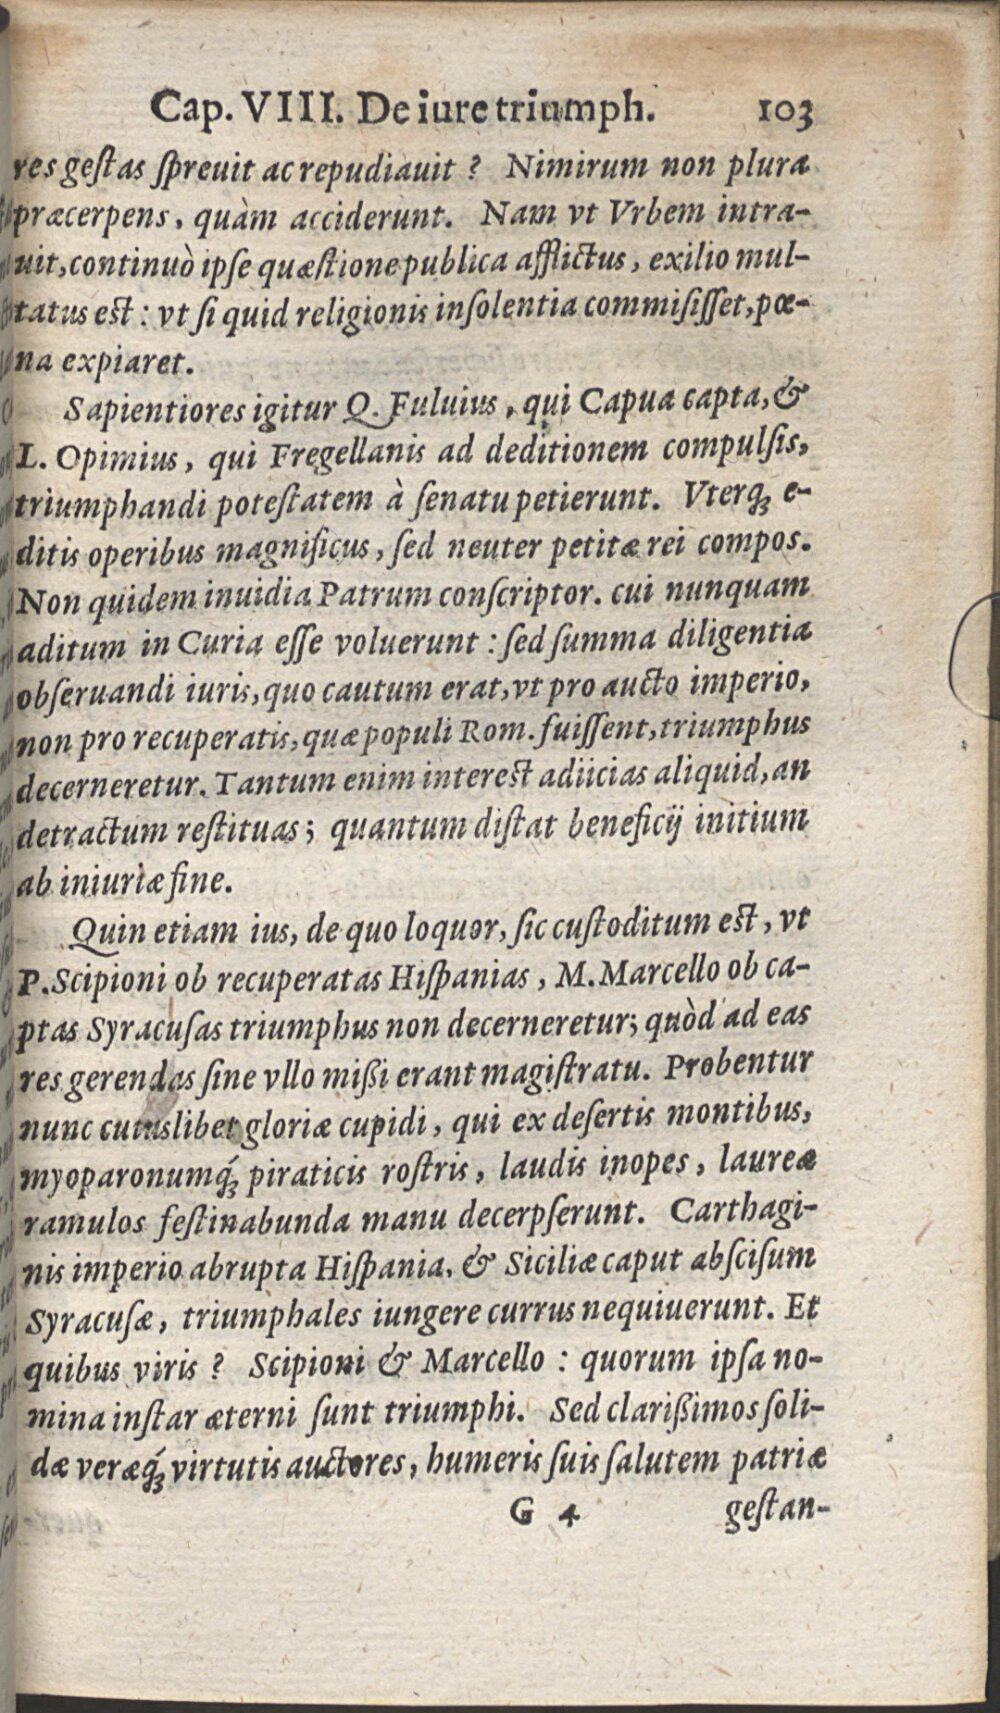 Cap. VIII. De iure triumph. 103
res geſtas ſpreuit ac repudiauit ? Nimirum non plura
præcerpens, quàm acciderunt. Nam vt Vrbem intra-
uit, continuò ipſe quæſtione publica afflictus, exilio mul-
tatus est : vt ſi quid religionis inſolentia commiſiſſet, pœ-
na expiaret.
Sapientiores igitur Q. Fuluius, qui Capua capta, &
L. Opimius, qui Fregellanis ad deditionem compulſis,
triumphandi poteſtatem à ſenatu petierunt. Vterq́; e-
ditis operibus magnificus, ſed neuter petitæ rei compos.
Non quidem inuidia Patrum conſcriptor. cui nunquam
aditum in Curia eſſe voluerunt : ſed ſumma diligentia
obſeruandi iuris, quo cautum erat, vt pro aucto imperio,
non pro recuperatis, quæ populi Rom. fuiſſent, triumphus
decerneretur. Tantum enim interest adiicias aliquid, an
detractum reſtituas; quantum diſtat beneficij initium
ab iniuriæ fine.
Quin etiam ius, de quo loquor, ſic cuſtoditum est, vt
P. Scipioni ob recuperatas Hiſpanias, M. Marcello ob ca-
ptas Syracuſas triumphus non decerneretur; quòd ad eas
res gerendas ſine vllo mißi erant magiſtratu. Probentur
nunc cuiuslibet gloriæ cupidi, qui ex deſertis montibus,
myoparonumq́; piraticis roſtris, laudis inopes, laureæ
ramulos feſtinabunda manu decerpſerunt. Carthagi-
nis imperio abrupta Hiſpania, & Siciliæ caput abſciſum
Syracuſæ, triumphales iungere currus nequiuerunt. Et
quibus viris ? Scipioni & Marcello : quorum ipſa no-
mina inſtar æterni ſunt triumphi. Sed clarißimos ſoli-
dæ veræq́; virtutis auctores, humeris ſuis ſalutem patriæ
G 4 geſtan-